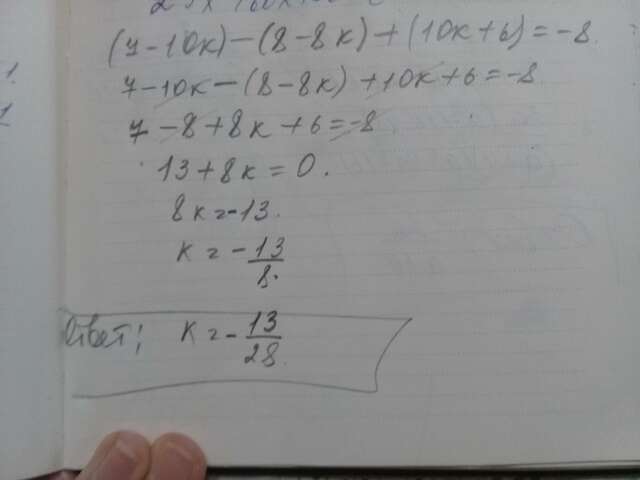 (7-10к)-(8-8к)+(10к+6)=-8.
7-10к-(8-8к)+10к+6=-8
7-8+8к+6=-8
13+8к=0.
8к=-13.
к=-13/8.
Ответ: к=-13/28.